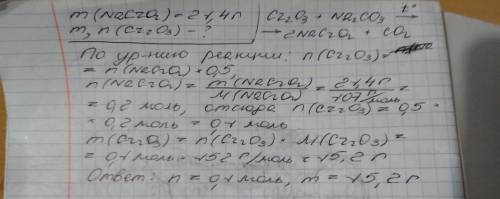 m(NaCrO₂) = 21,4 г
m, n(Cr₂O₃) - ?
Cr₂O₃ + Na₂CO₃ t° →
→ 2NaCrO₂ + CO₂
По ур-нию реакции: n(Cr₂O₃) =
= n(NaCrO₂) · 0,5,
n(NaCrO₂) = m(NaCrO₂) / M(NaCrO₂) = 21,4 г / 107 г/моль =
= 0,2 моль, отсюда n(Cr₂O₃) = 0,5 ·
· 0,2 моль = 0,1 моль
m(Cr₂O₃) = n(Cr₂O₃) · M(Cr₂O₃) =
= 0,1 моль · 152 г/моль = 15,2 г
Ответ: n = 0,1 моль, m = 15,2 г